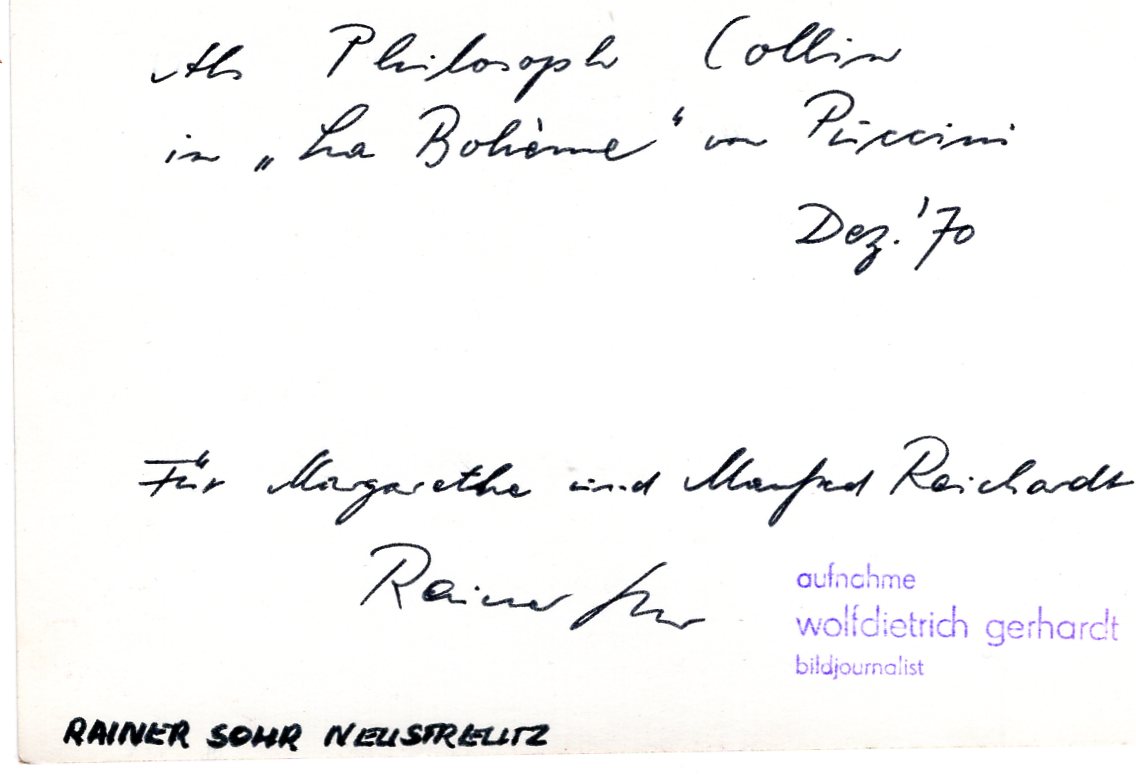 Als Philosoph Collin
in „La Bohème“ von Puccini
Dez. '70
Für Margarethe und Manfred Reichardt
Rainer Sohr
aufnahme
wolfdietrich gerhardt
bildjournalist
RAINER SOHR NEUSTRELITZ